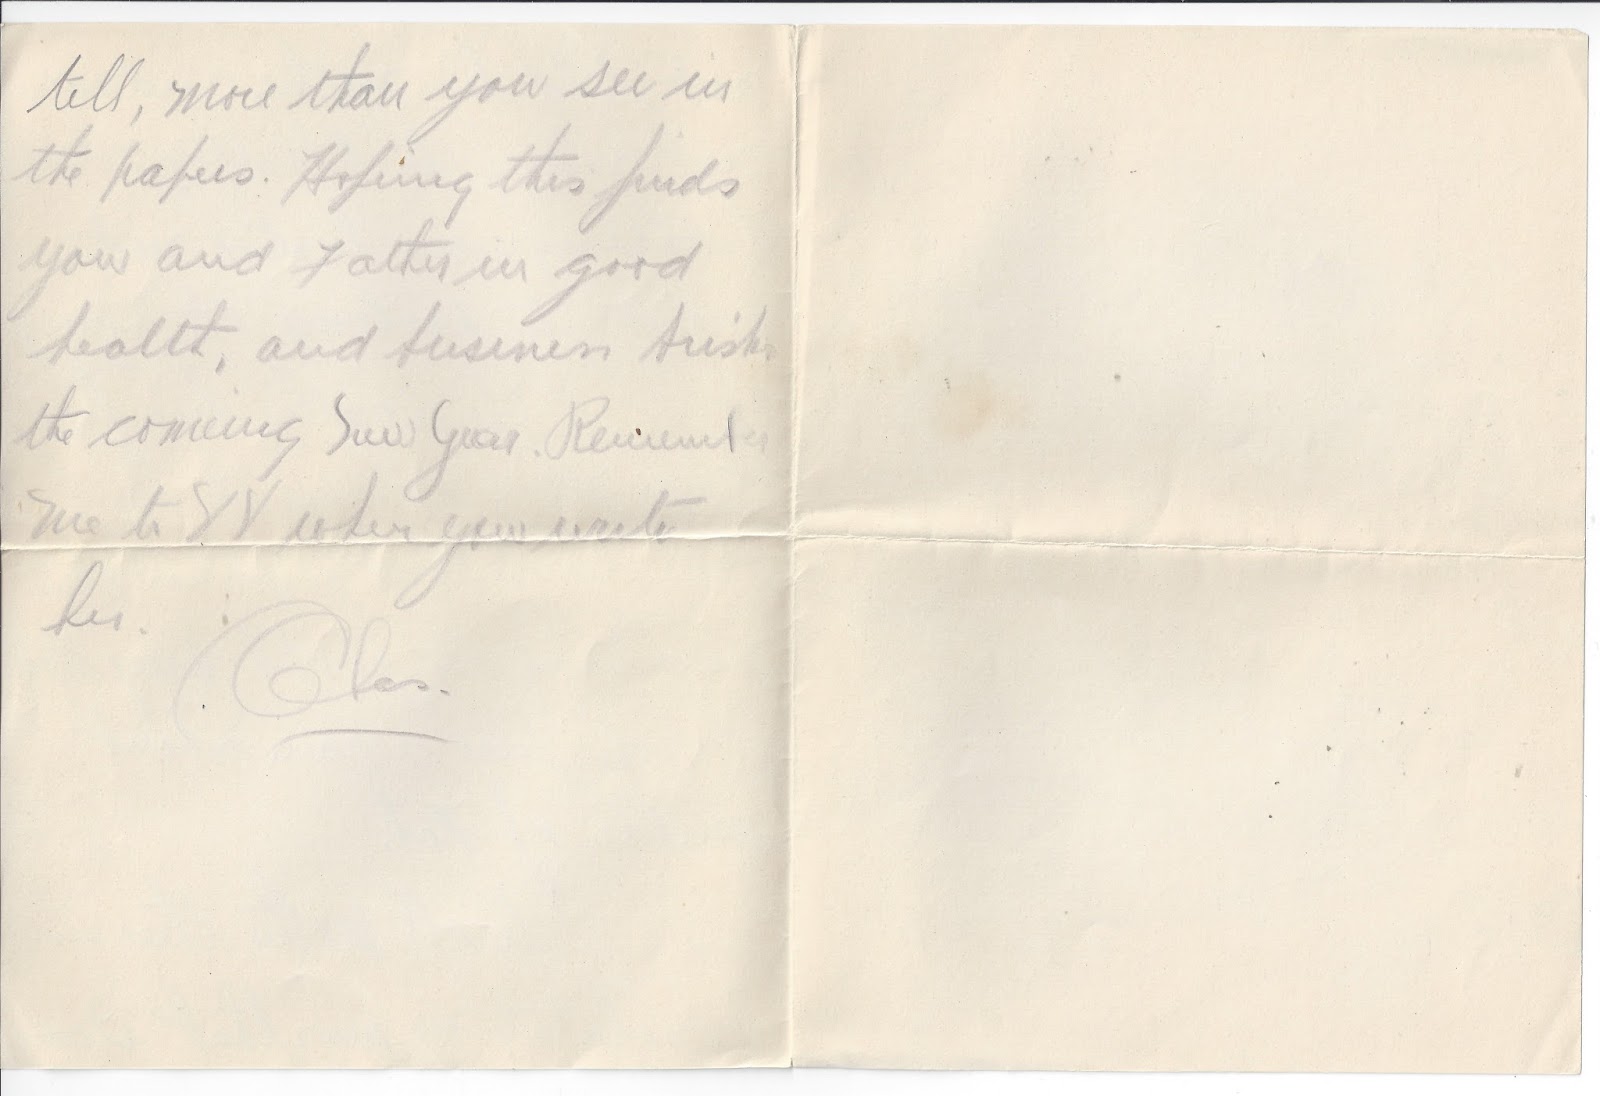 tell, more than you see in
the papers. Hoping this finds
you and Father in good
health, and business brisk
the coming New Year. Remember
me to VV when you write
her.
Chas.